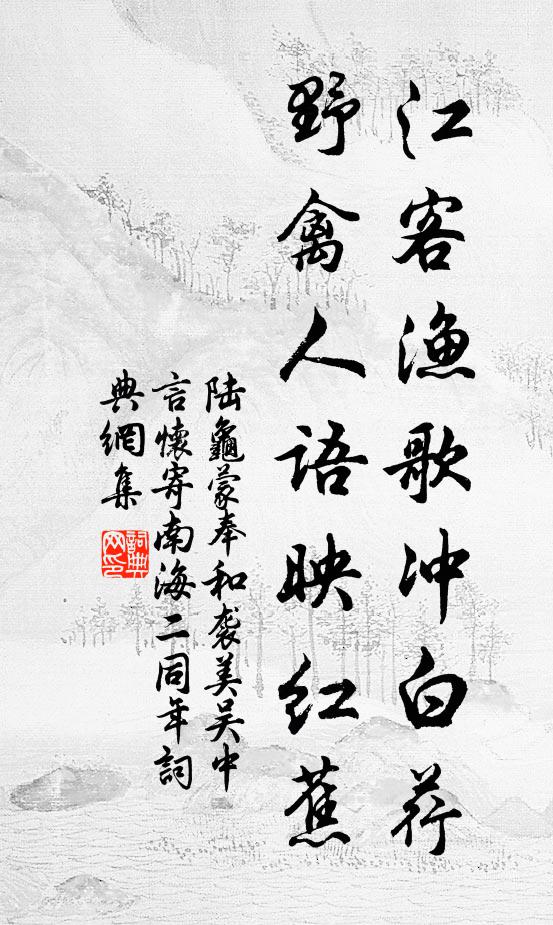 江客渔歌冲白荇
野禽人语映红蕉
陆龜蒙奉和袭美吴中
言懷寄南海二同年詞
典網集
詞典
网印